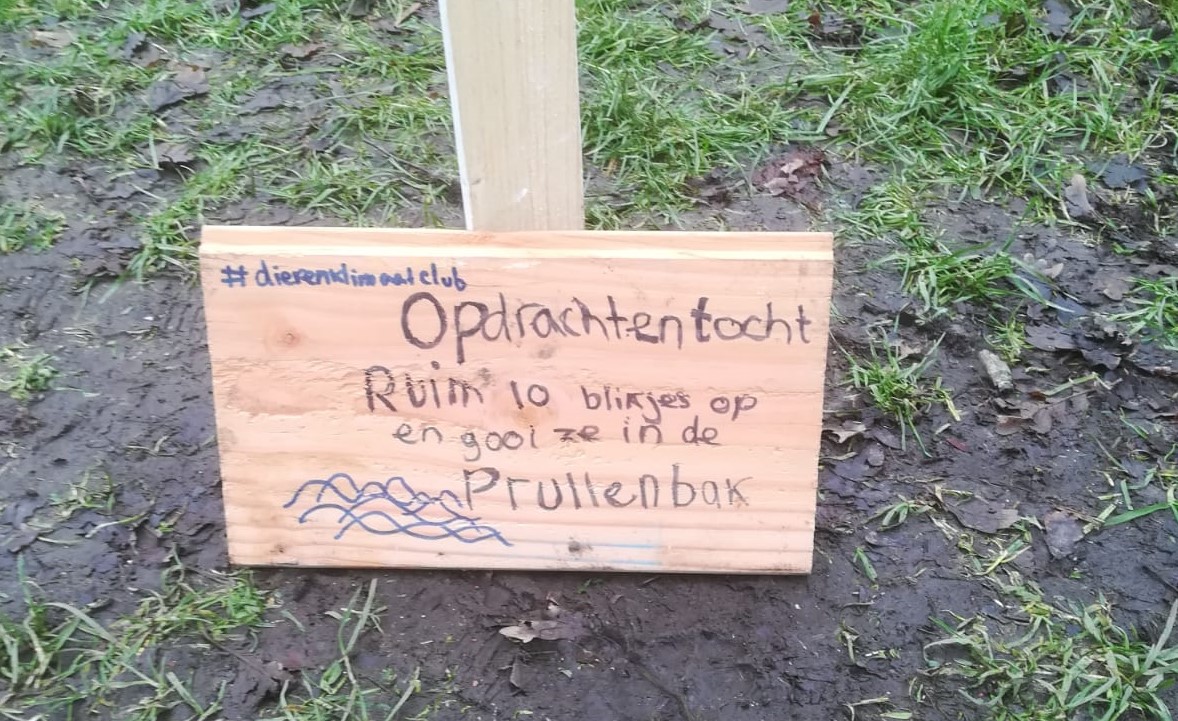 #dierenklimaatclub
Opdrachtentocht
Ruim 10 blikjes op
en gooi ze in de
Prullenbak